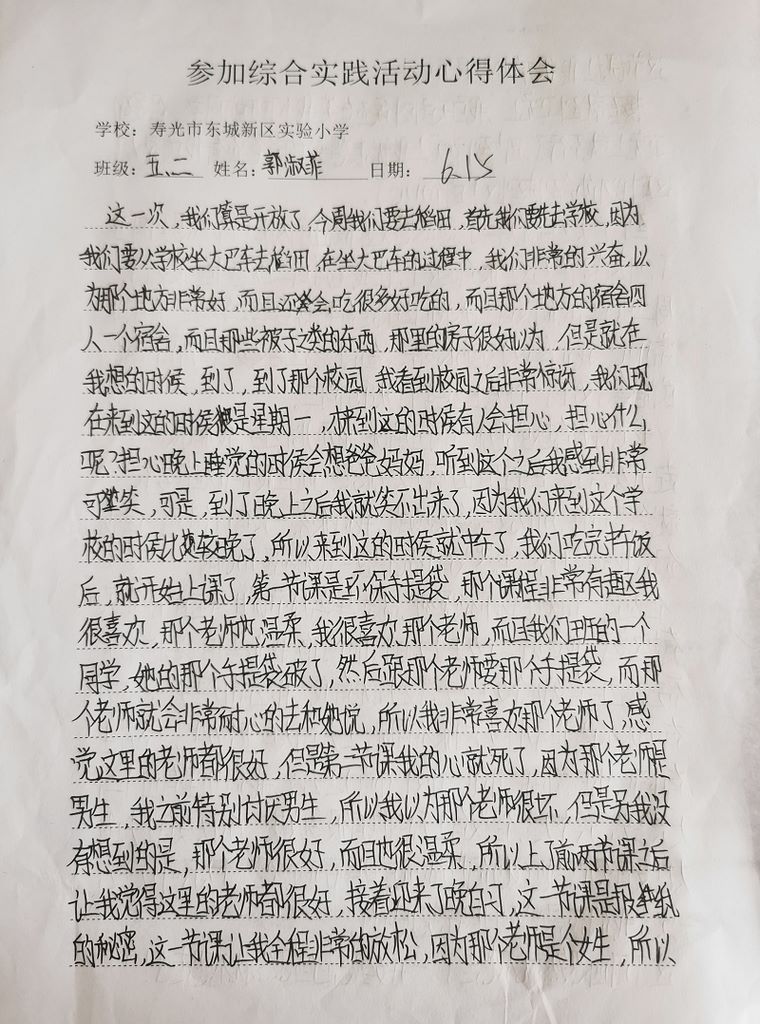 参加综合实践活动心得体会
学校：寿光市东城新区实验小学
班级：五、二 姓名：郭淑菲 日期：6.15
这一次，我们真是开放了，今周我们要去稻田，首先我们要先去学校，因为
我们要从学校坐大巴车去稻田，在坐大巴车的过程中，我们非常的兴奋，以
为那个地方非常好，而且还会吃很多好吃的，而且那个地方的宿舍四
人一个宿舍，而且那些被子之类的东西，那里的房子很好以为，但是就在
我想的时候，到了，到了那个校园，我看到校园之后非常惊讶，我们现
在来到这的时候是星期一，才来到这的时候有人会担心，担心什么
呢？担心晚上睡觉的时候会想爸爸妈妈，听到这个之后我感到非常
可笑，可是，到了晚上之后我就笑不出来了，因为我们来到这个学
校的时候比较晚了，所以来到这的时候就中午了，我们吃完中午饭
后，就开始上课了，第一节课是环保手提袋，那个课程非常有趣我
很喜欢，那个老师也温柔，我很喜欢那个老师，而且我们班的一个
同学，她的那个手提袋破了，然后跟那个老师要那个手提袋，而那
个老师就会非常耐心的去和她说，所以我非常喜欢那个老师了，感
觉这里的老师都很好，但是第二节课我的心就死了，因为那个老师是
男生，我之前特别讨厌男生，所以我以为那个老师很坏，但是另我没
有想到的是，那个老师很好，而且也很温柔，所以上了前两节课之后
让我觉得这里的老师都很好，接着迎来了晚自习，这一节课是报纸
的秘密，这一节课让我全程非常的放松，因为那个老师是个女生，所以